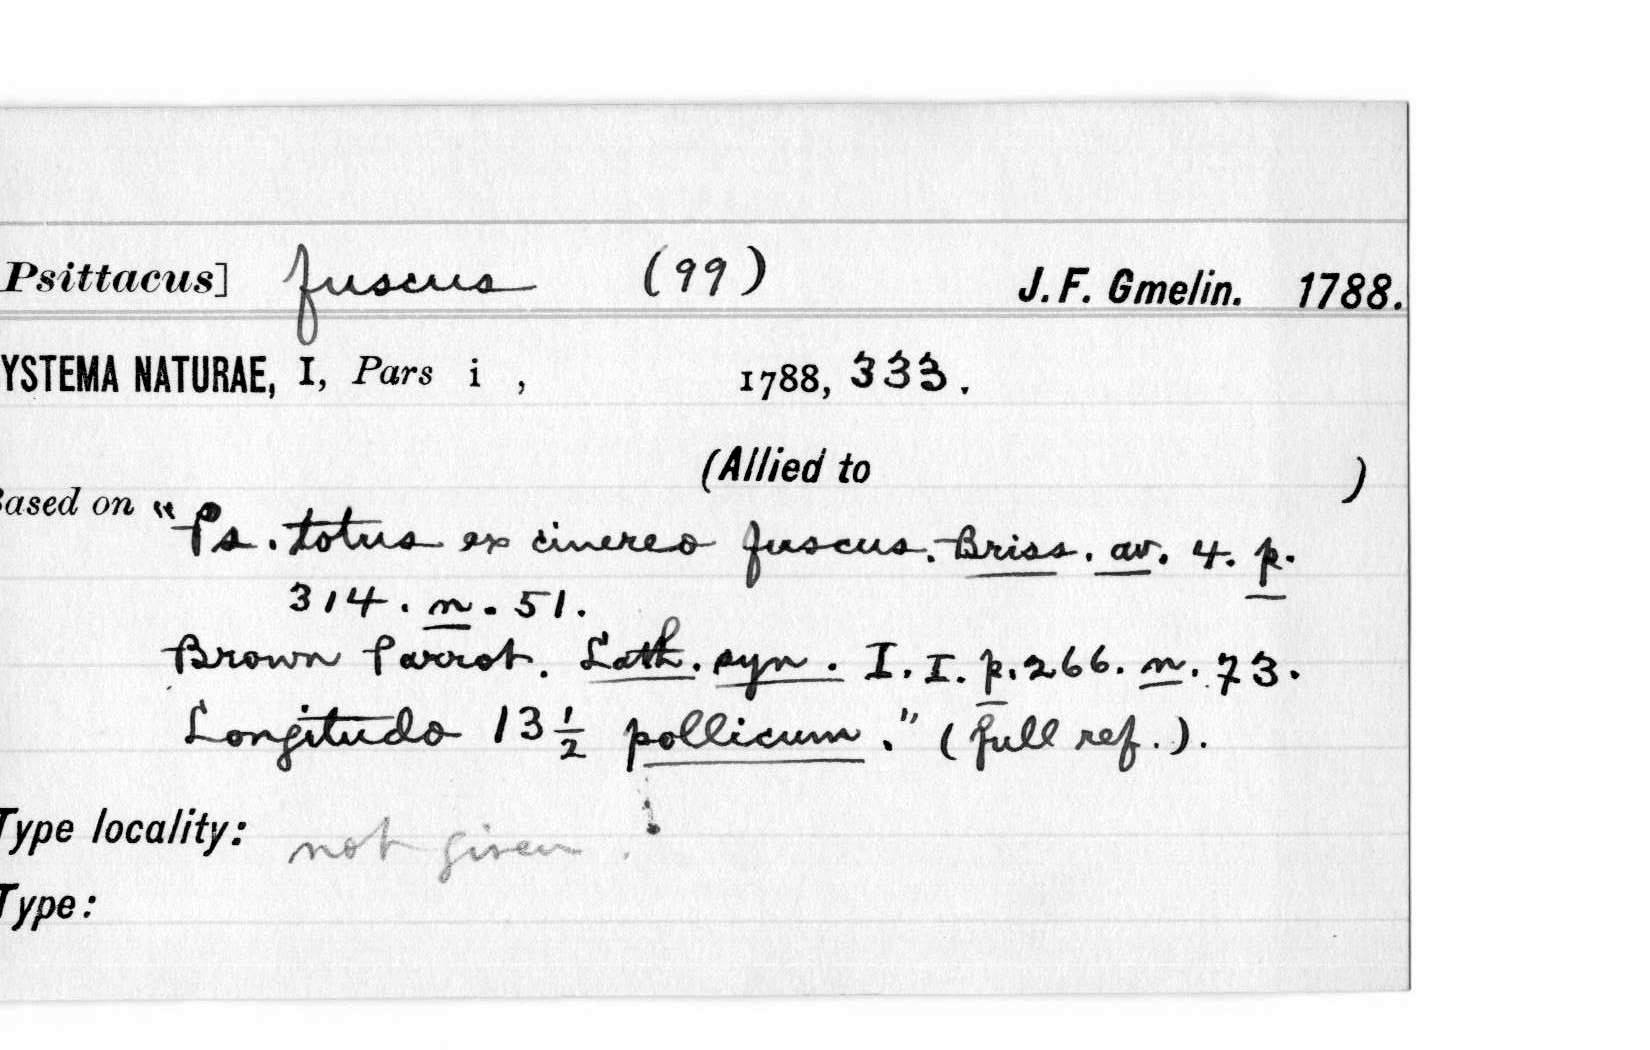 Psittacus] fuscus (99) J. F. Gmelin. 1788.
YSTEMA NATURAE, I, Pars i , 1788, 333.
(Allied to )
Based on "Ps. totus ex cinereo fuscus. Briss. av. 4. p.
314. n. 51.
Brown Parrot. Lath. syn. I. I. p. 266. n. 73.
Longitudo 13 1/2 pollicum." (full ref.).
Type locality: not given.
Type: